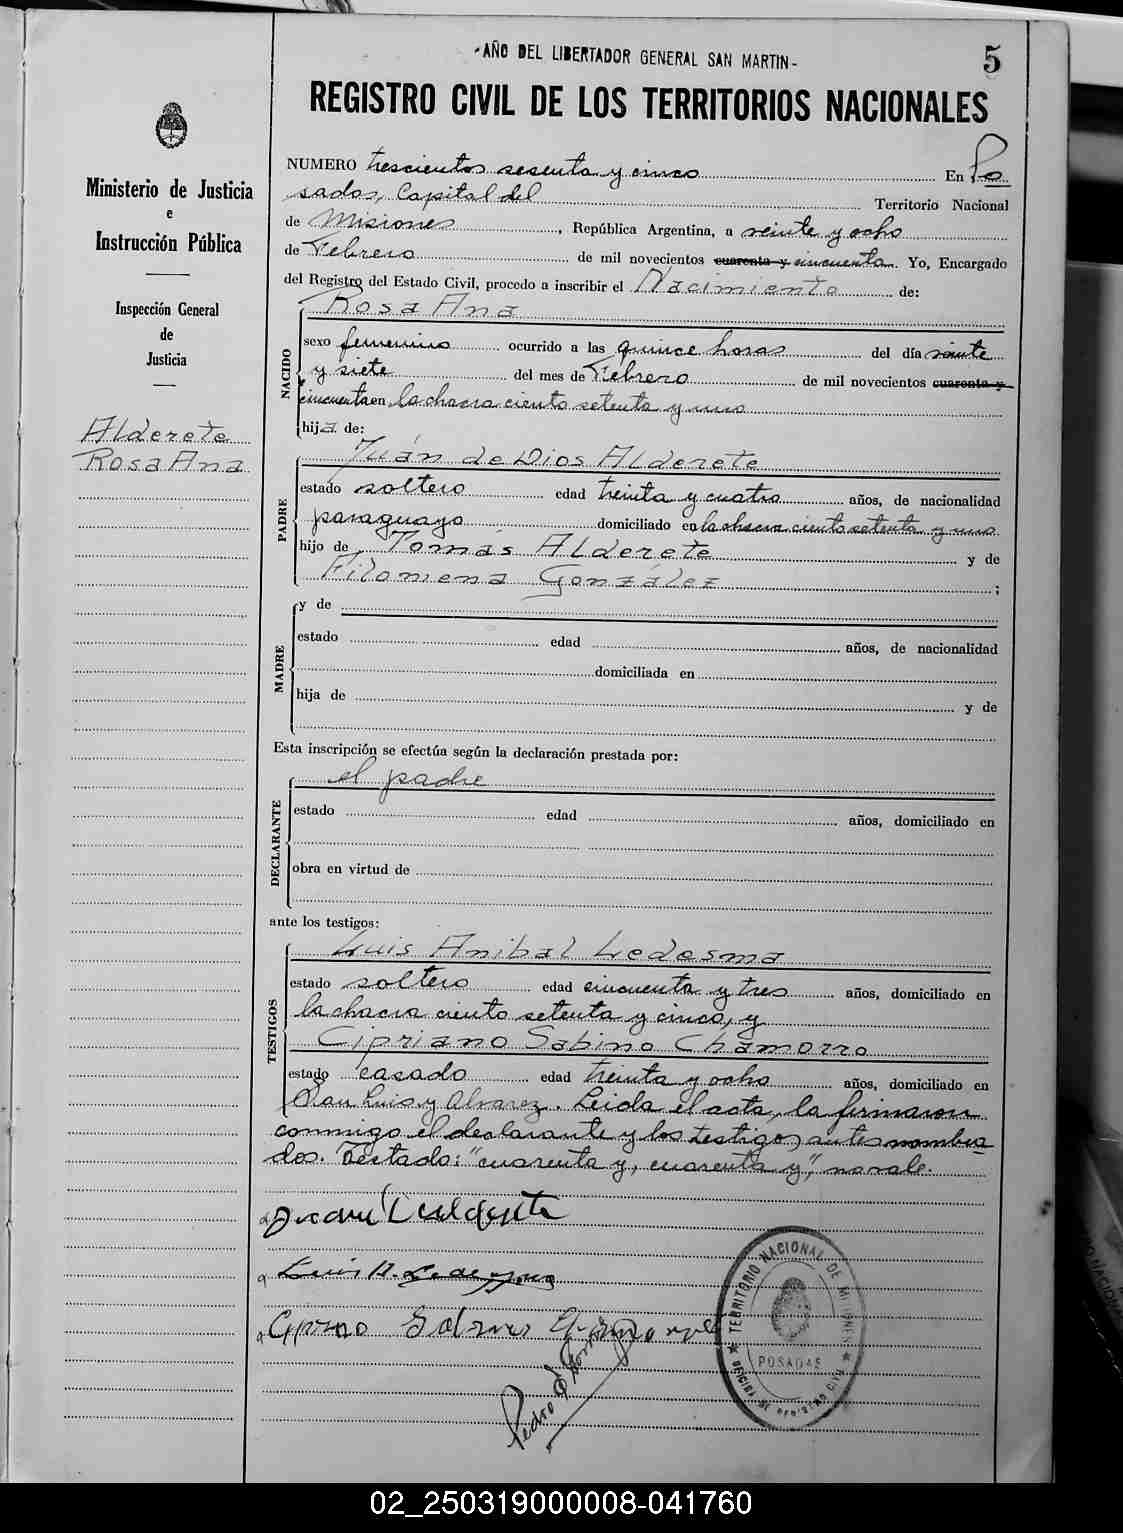 -AÑO DEL LIBERTADOR GENERAL SAN MARTIN-
5
REGISTRO CIVIL DE LOS TERRITORIOS NACIONALES
Ministerio de Justicia
e
Instrucción Pública
Inspección General
de
Justicia
Alderete
Rosa Ana
NUMERO trescientos sesenta y cinco En Po
sadas, Capital del Territorio Nacional
de Misiones, República Argentina, a veinte y ocho
de Febrero de mil novecientos cuarenta y cincuenta. Yo, Encargado
del Registro del Estado Civil, procedo a inscribir el Nacimiento de:
Rosa Ana
NACIDO
sexo femenino ocurrido a las quince horas del día veinte
y siete del mes de Febrero de mil novecientos cuarenta y
cincuenta en la chacra ciento setenta y uno
hija de:
Juán de Dios Alderete
PADRE
estado soltero edad treinta y cuatro años, de nacionalidad
paraguayo domiciliado en la chacra ciento setenta y uno
hijo de Tomás Alderete y de
Filomena González ;
MADRE
y de
estado edad años, de nacionalidad
domiciliada en
hija de y de
Esta inscripción se efectúa según la declaración prestada por:
el padre
DECLARANTE
estado edad años, domiciliado en
obra en virtud de
ante los testigos:
Luis Anibal Ledesma
TESTIGOS
estado soltero edad cincuenta y tres años, domiciliado en
la chacra ciento setenta y cinco, y
Cipriano Sabino Chamorro
estado casado edad treinta y ocho años, domiciliado en
San Luis y Alvarez. Leida el acta, la firmaron
conmigo el declarante y los testigos antes nombra
dos. Testado: "cuarenta y, cuarenta y", no vale.
Luis A. Ledesma
Pedro
TERRITORIO NACIONAL DE MISIONES
POSADAS
OFICINA DE REGISTRO CIVIL
02_250319000008-041760